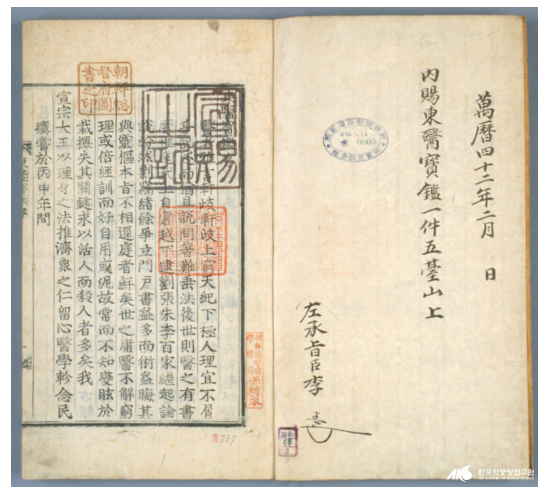 萬曆四十二年二月 日
內賜東醫寶鑑一件五臺山上
左承旨臣李
宣賜之記
朝鮮總督府圖書之印
醫者雅言軒岐軒岐上窮天紀下極人理宜不屑
乎記述而猶且說問著難垂法後世則醫之有書
上自倉越下逮劉張朱李百家繼起論
說紛然剽竊緖餘爭立門戶書益多而術益晦其
與靈樞本旨不相逕庭者鮮矣世之庸醫不解窮
理或倍經訓而好自用或泥故常而不知變眩於
裁擇失其關鍵求以活人而殺人者多矣我
宣宗大王以理身之法推濟衆之仁留心醫學軫念民
瘼嘗於丙申年間
737
한국학중앙연구원